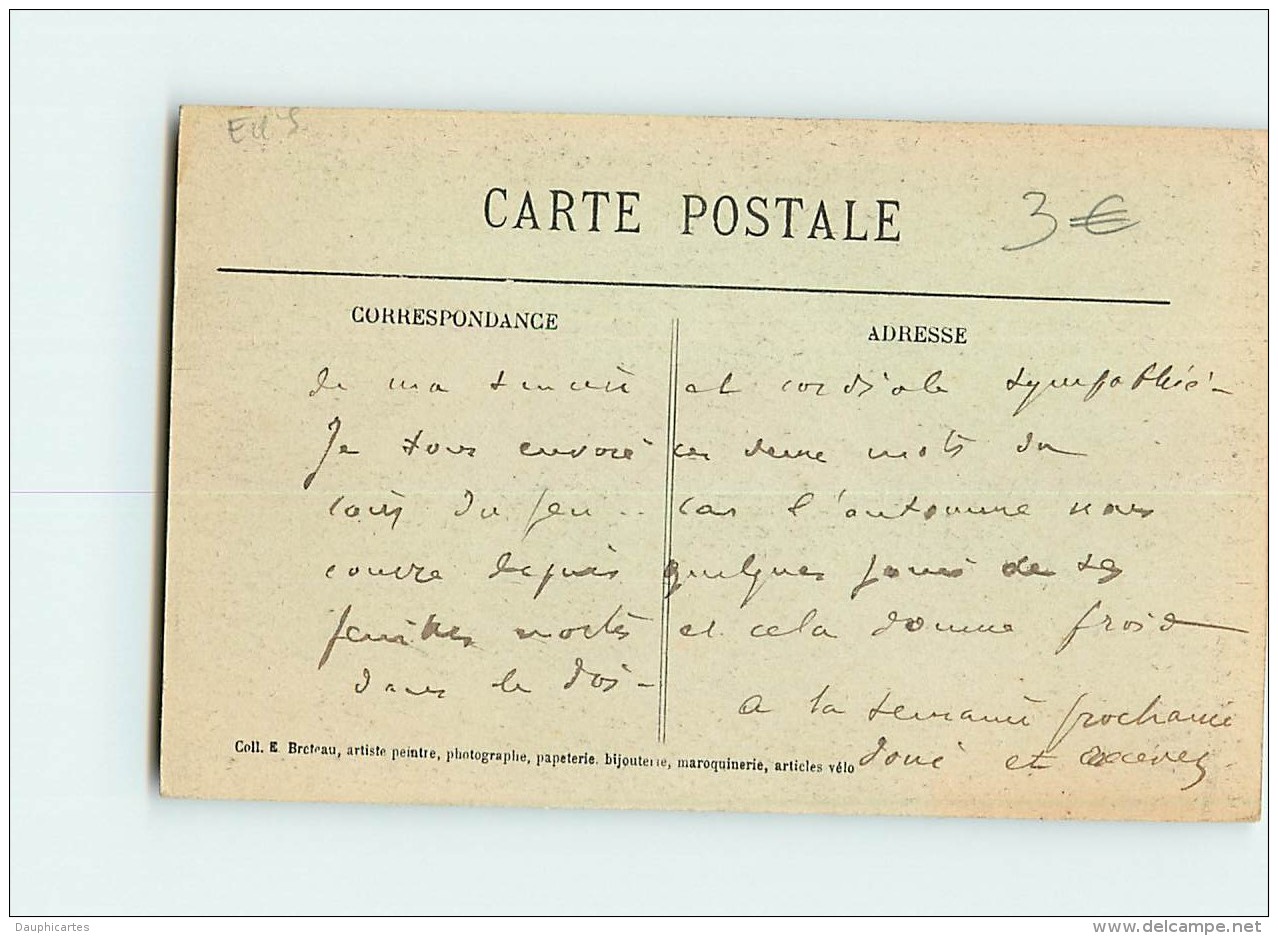 EUS
CARTE POSTALE
3€
CORRESPONDANCE
ADRESSE
de ma sincère et cordiale sympathie -
Je vous envoie ces deux mots du
coin du feu .. car l'automne nous
couvre depuis quelques jours de ses
feuilles mortes et cela donne froid
dans le dos -
A la semaine prochaine
donc et recevez
Coll. E. Breteau, artiste peintre, photographe, papeterie, bijouterie, maroquinerie, articles vélo
Dauphicartes
www.delcampe.net